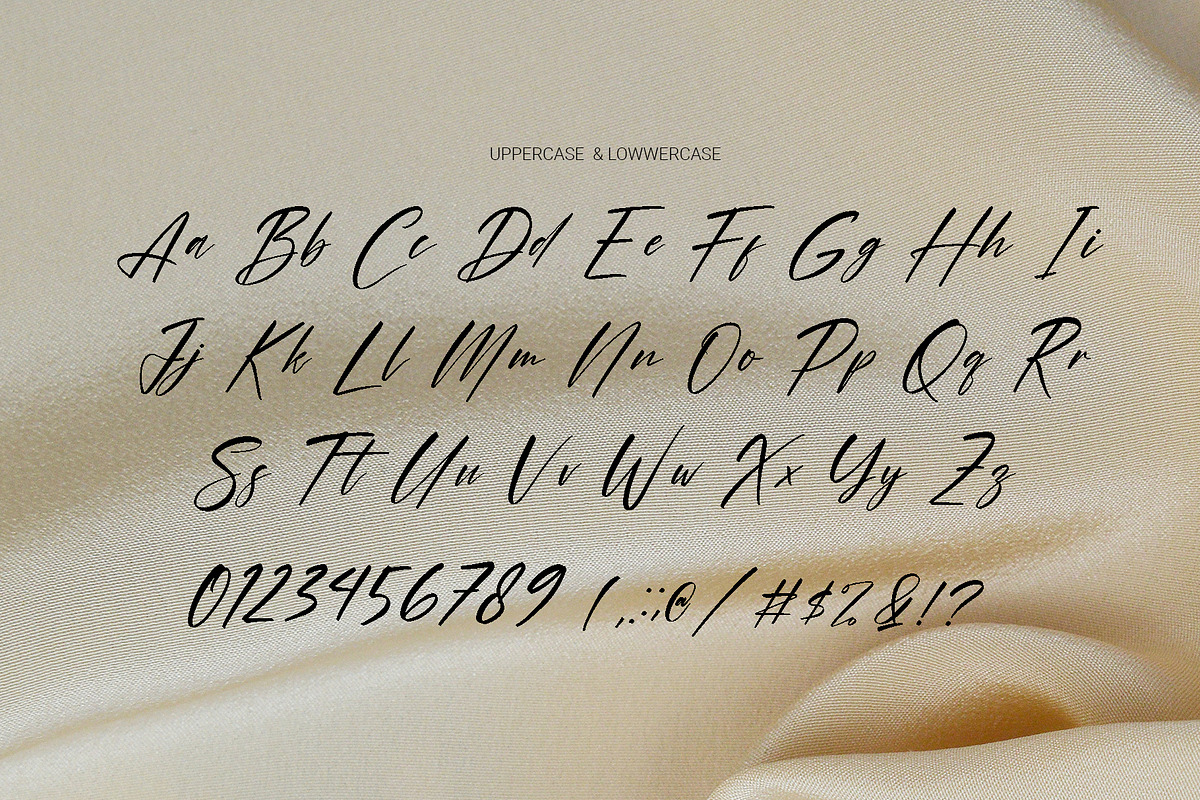 UPPERCASE & LOWWERCASE
Aa Bb Cc Dd Ee Ff Gg Hh Ii
Jj Kk Ll Mm Nn Oo Pp Qq Rr
Ss Tt Uu Vv Ww Xx Yy Zz
0123456789 (,.:;@/#$%&!?